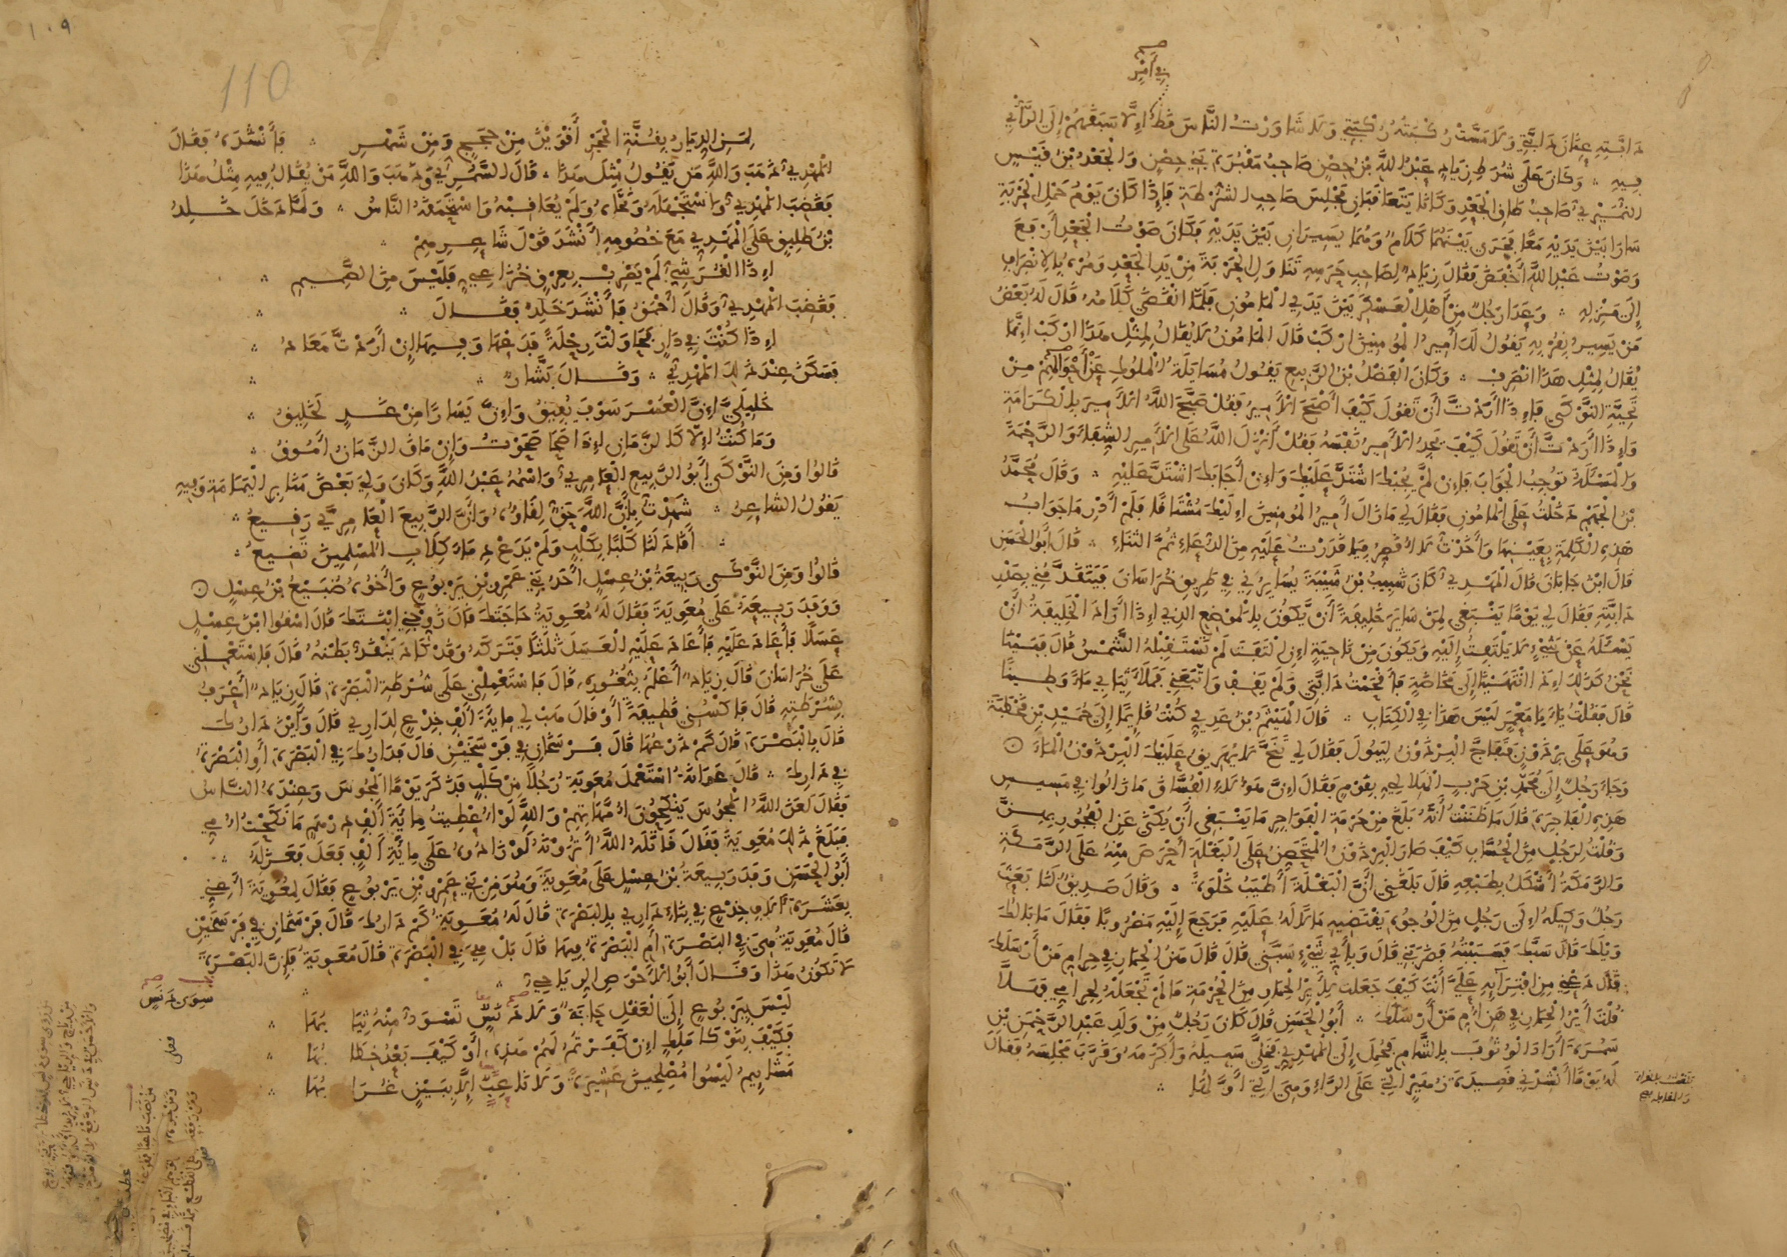 في أمر
دابته عنان دابتي ولا مست ركبته ركبتي ولا شاورت الناس قط إلا سبقهم إلى الرأي
فيه ∴ وكان على شرط زياد عبد الله بن حصن صاحب مقبرة بني حصن والجعد بن قيس
النميري صاحب طاق الجعد وكانا يتعاقبان مجلس صاحب الشرطة فإذا كان يوم حمل الحربة
سارا بين يديه معا فجرى بينهما كلام وهما يسيران بين يديه فكان صوت الجعد أرفع
وصوت عبد الله أخفض فقال زياد لصاحب حرسه تناول الحربة من يد الجعد ومره بالانصراف
إلى منزله ∴ وعدا رجل من أهل العسكر بين يدي المأمون فلما انقضى كلامه قال له بعض
من يسير بقربه يقول لك أمير المؤمنين اركب قال المأمون لا يقال لمثل هذا اركب إنما
يقال لمثل هذا انصرف ∴ وكان الفضل بن الربيع يقول مساءلة الملوك عن أحوالهم من
تحية النوكى فإذا أردت أن تقول كيف أصبح الأمير فقل صبح الله الأمير بالكرامة
وإذا أردت أن تقول كيف يجد الأمير نفسه فقل أنزل الله على الأمير الشفاء والرحمة
والمسئلة توجب الجواب فإن لم يجبك اشتد عليك وإن أجابك اشتد عليه ∴ وقال محمد
بن الجهم دخلت على المأمون فقال لي ما زال أمير المؤمنين إليك مشتاقا فلم أدر ما جواب
هذه الكلمة بعينها وأخذت لا أقصر فيما قدرت عليه من الدعاء ثم الثناء ∴ قال أبو الحسن
قال ابن جابان قال المهدي كان شبيب بن شيبة يسايرني في طريق خراسان فيتقدمني بصدر
دابته فقال لي يوما ينبغي لمن ساير خليفة أن يكون بالموضع الذي إذا أراد الخليفة أن
يسئله عن شيء لا يلتفت إليه ويكون من ناحية إن التفت لم تستقبله الشمس قال فبينا
نحن كذلك إذ انتهينا إلى مخاضة فأقحمت دابتي ولم يقف واتبعني فملأ ثيابي ماء وطينا
قال فقلت يا أبا معمر ليس هذا في الكتاب ∴ قال الهيثم بن عدي كنت قائما إلى حميد بن قحطبة
وهو على برذون فتفاج البرذون ليبول فقال لي تنح لا يهريق عليك البرذون الماء ⊙
وجاء رجل إلى محمد بن حرب الهلالي بقوم فقال إن هؤلاء الفساق ما زالوا في مسيس
هذه الفاجرة قال ما ظننت أنه بلغ من حرمة الفواجر ما ينبغي أن يكنى عن الفجور بهن
وقلت لرجل من الحساب كيف صار البرذون المتحصن على البغلة أحرص منه على الرمكة
والرمكة أشكل بطبعه قال بلغني أن البغلة أطيب خلوة ∴ وقال صديق لنا بعث
رجل وكيله إلى رجل من الوجوه يقتضيه مالا له عليه فرجع إليه مضروبا فقال ما بالك
ويلك قال سبك فسببته فضربني قال وبأي شيء سبني قال قال هن الحمار في حرام من أرسلك
قال دعني من افترائه علي أنت كيف جعلت لأير الحمار من الحرمة ما لم تجعله لحر أمي فهلا
قلت أير الحمار في هن أم من أرسلك ∴ أبو الحسن قال كان رجل من ولد عبد الرحمن بن
سمرة أراد الوثوب بالشام فحمل إلى المهدي فخلى سبيله وأكرمه وقرب مجلسه فقال
له يوما أنشدني قصيدة زهير التي على الراء وهي التي أولها ∴
110
لمن الديار بقنة الحجر أقوين من حجج ومن شهر ∴ فأنشده فقال
المهدي ذهب والله من يقول مثل هذا ∴ قال السمري وذهب والله من يقال فيه مثل هذا
فغضب المهدي واستجهله ونحاه ولم يعاقبه واستحمقه الناس ∴ ولما دخل خلد
بن طليق على المهدي مع خصومه أنشد قول شاعرهم
إذا القرشي لم يضرب بعرق خزاعي فليس من الصميم
فغضب المهدي وقال أحمق فأنشد خلد فقال
إذا كنت في دار فحاولت رحلة فدعها وفيها إن أردت معاد
فسكن عند ذلك المهدي ∴ وقال بشار
خليلي إن العسر سوف يفيق وإن يسارا من غد لخليق
وما كنت إلا كالزمان إذا صحا صحوت وإن ماق الزمان أموق
قالوا ومن النوكى أبو الربيع العامري واسمه عبد الله وكان ولي بعض منابر اليمامة وفيه
يقول الشاعر ∴ شهدت بأن الله حق لقاؤه وأن الربيع العامري رفيع
أقاد لنا كلبا بكلب ولم يدع دماء كلاب المسلمين تضيع
قالوا ومن النوكى ربيعة بن عسل أحد بني عمرو بن يربوع وأخوه صبيغ بن عسل ⊙
ووفد ربيعة على معوية فقال له معوية حاجتك قال زوجني ابنتك قال اسقوا ابن عسل
عسلا فأعاد عليه فأعاد عليه العسل ثلثا فتركه وقد كاد ينقد بطنه قال فاستعملني
على خراسان قال زياد أعلم بثغوره قال فاستعملني على شرطة البصرة قال زياد أعرف
بشرطته قال فاكسني قطيفة أو قال هب لي مائة ألف جذع لداري قال وأين دارك
قال بالبصرة قال كم ذرعها قال فرسخان في فرسخين قال فدارك في البصرة أو البصرة
في دارك ∴ قال عوانة استعمل معوية رجلا من كلب فذكر يوما المجوس وعنده الناس
فقال لعن الله المجوس ينكحون أمهاتهم والله لو أعطيت مائة ألف درهم ما نكحت أمي
فبلغ ذلك معوية فقال قاتله الله أترونه لو زادوه على مائة ألف فعل فعزله
أبو الحسن وفد ربيعة بن عسل على معوية وهو من بني عمرو بن يربوع فقال لمعوية أعني
بعشرة آلاف جذع في بناء داري بالبصرة قال له معوية كم دارك قال فرسخان في فرسخين
قال معوية هي في البصرة أم البصرة فيها قال بل هي في البصرة قال معوية فإن البصرة
لا تكون هذا وقال أبو الأخوص الرياحي
ليس بيربوع إلى العقل حاجة ولا دنس تسود منه ثيابها
فكيف بنوكا ملك إن كفرتم لهم هذه أو كيف بعد خطابها
مشائيم ليسوا مصلحين عشيرة ولا ناعب إلا ببين غرابها
سوى دنس